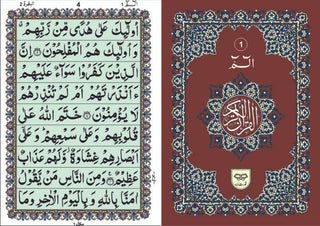 البقرة ٢
4
الٓمّٓ ١
اُولٰٓئِكَ عَلٰى هُدًى مِّنْ رَّبِّهِمْ ۙ
وَاُولٰٓئِكَ هُمُ الْمُفْلِحُوْنَ ۝ اِنَّ
الَّذِيْنَ كَفَرُوْا سَوَآءٌ عَلَيْهِمْ
ءَاَنْذَرْتَهُمْ اَمْ لَمْ تُنْذِرْهُمْ
لَا يُؤْمِنُوْنَ ۝ خَتَمَ اللّٰهُ عَلٰى
قُلُوْبِهِمْ وَعَلٰى سَمْعِهِمْ ؕ وَعَلٰٓى
اَبْصَارِهِمْ غِشَاوَةٌ ؗ وَّلَهُمْ عَذَابٌ
عَظِيْمٌ ۝ وَمِنَ النَّاسِ مَنْ يَّقُوْلُ
اٰمَنَّا بِاللّٰهِ وَبِالْيَوْمِ الْاٰخِرِ وَمَا
1
الٓمّٓ
القرآن الكريم